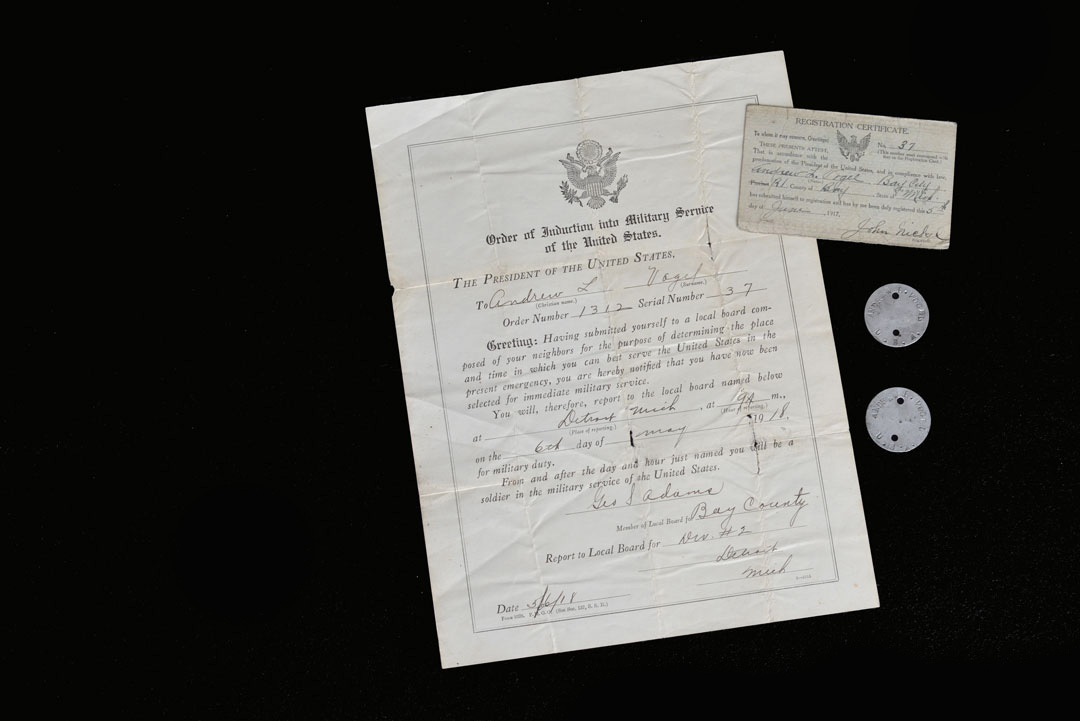 Order of Induction into Military Service
of the United States.
THE PRESIDENT OF THE UNITED STATES,
To Andrew L Vogel
(Christian name.) (Surname.)
Order Number 1312 Serial Number 37
Greeting: Having submitted yourself to a local board com-
posed of your neighbors for the purpose of determining the place
and time in which you can best serve the United States in the
present emergency, you are hereby notified that you have now been
selected for immediate military service.
You will, therefore, report to the local board named below
at Detroit Mich, at m.,
(Place of reporting.) (Hour of reporting.)
on the 6th day of may, 1918,
for military duty.
From and after the day and hour just named you will be a
soldier in the military service of the United States.
Geo S Adams
Member of Local Board for Bay County
Report to Local Board for Div. #2
Detroit
Mich
Date 5/6/18
REGISTRATION CERTIFICATE.
To whom it may concern, Greetings:
No. 37
THESE PRESENTS ATTEST,
(This number must correspond with
that on the Registration Card.)
That in accordance with the
proclamation of the President of the United States, and in compliance with law,
Andrew L. Vogel, Bay City
Precinct R1, County of Bay, State of Mich.
has submitted himself to registration and has by me been duly registered this 5th
day of June, 1917.
John